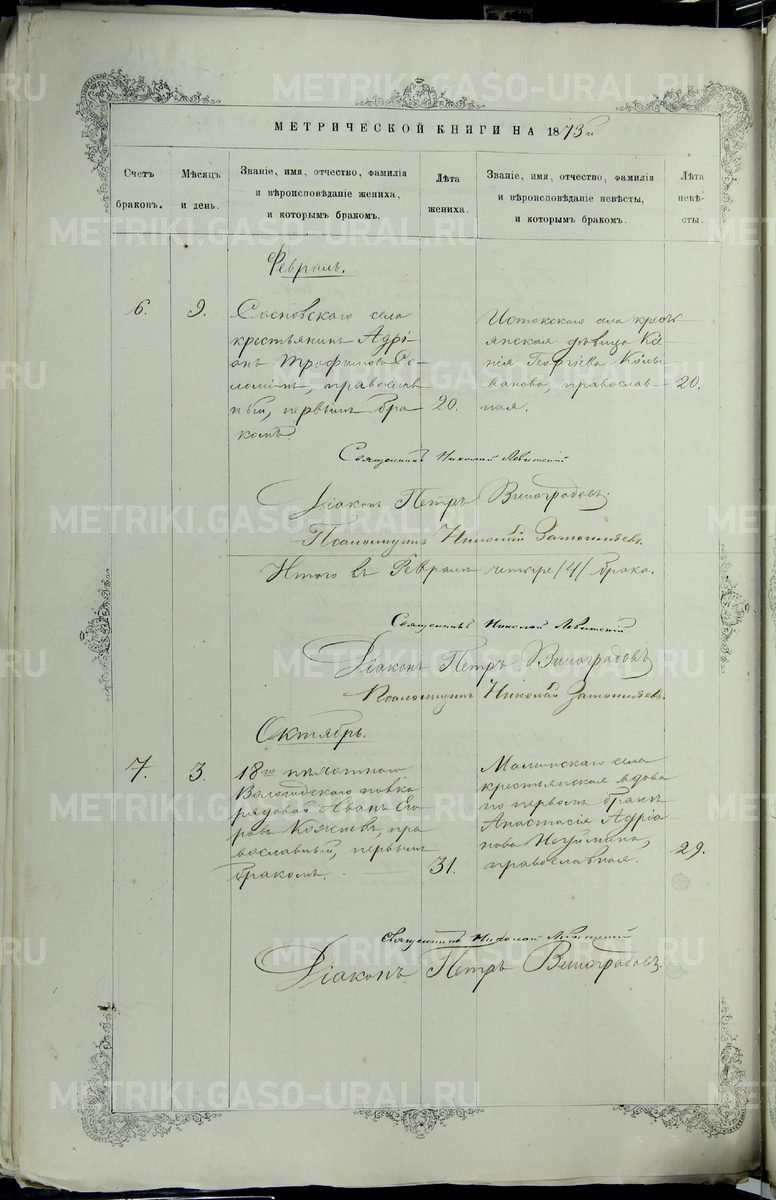 МЕТРИЧЕСКОЙ КНИГИ НА 1873 й
Счетъ браковъ.
Мѣсяцъ и день.
Званіе, имя, отчество, фамилія
и вѣроисповѣданіе жениха,
и которымъ бракомъ.
Лѣта
жениха.
Званіе, имя, отчество, фамилія
и вѣроисповѣданіе невѣсты,
и которымъ бракомъ.
Лѣта
невѣ-
сты.
Февраль.
6.
9.
Сосновскаго села
крестьянинъ Адрі-
анъ Трофимовъ Со-
ломеинъ, православ
ный, первымъ бра
комъ.
20.
Истокскаго села кресть
янская дѣвица Ксе
нія Георгіева Колы
ванова, православ-
ная.
20.
Священникъ Николай Левитскій
Діаконъ Петръ Виноградовъ.
Псаломщикъ Николай
Итого въ Февралѣ четыре /4/ брака.
Священникъ Николай Левитскій
Діаконъ Петръ Виноградовъ
Псаломщикъ Николай
Октябрь.
7.
3.
18го пѣхотнаго
Вологодского полка
рядовой Иванъ Его
ровъ пра
вославный, первымъ
бракомъ.
31.
Маминскаго села
крестьянская вдова
по первомъ бракѣ
Анастасія Адріа
нова Неуймина,
православная.
29.
Священникъ Николай Левитскій
Діаконъ Петръ Виноградовъ.
METRIKI.GASO-URAL.RU